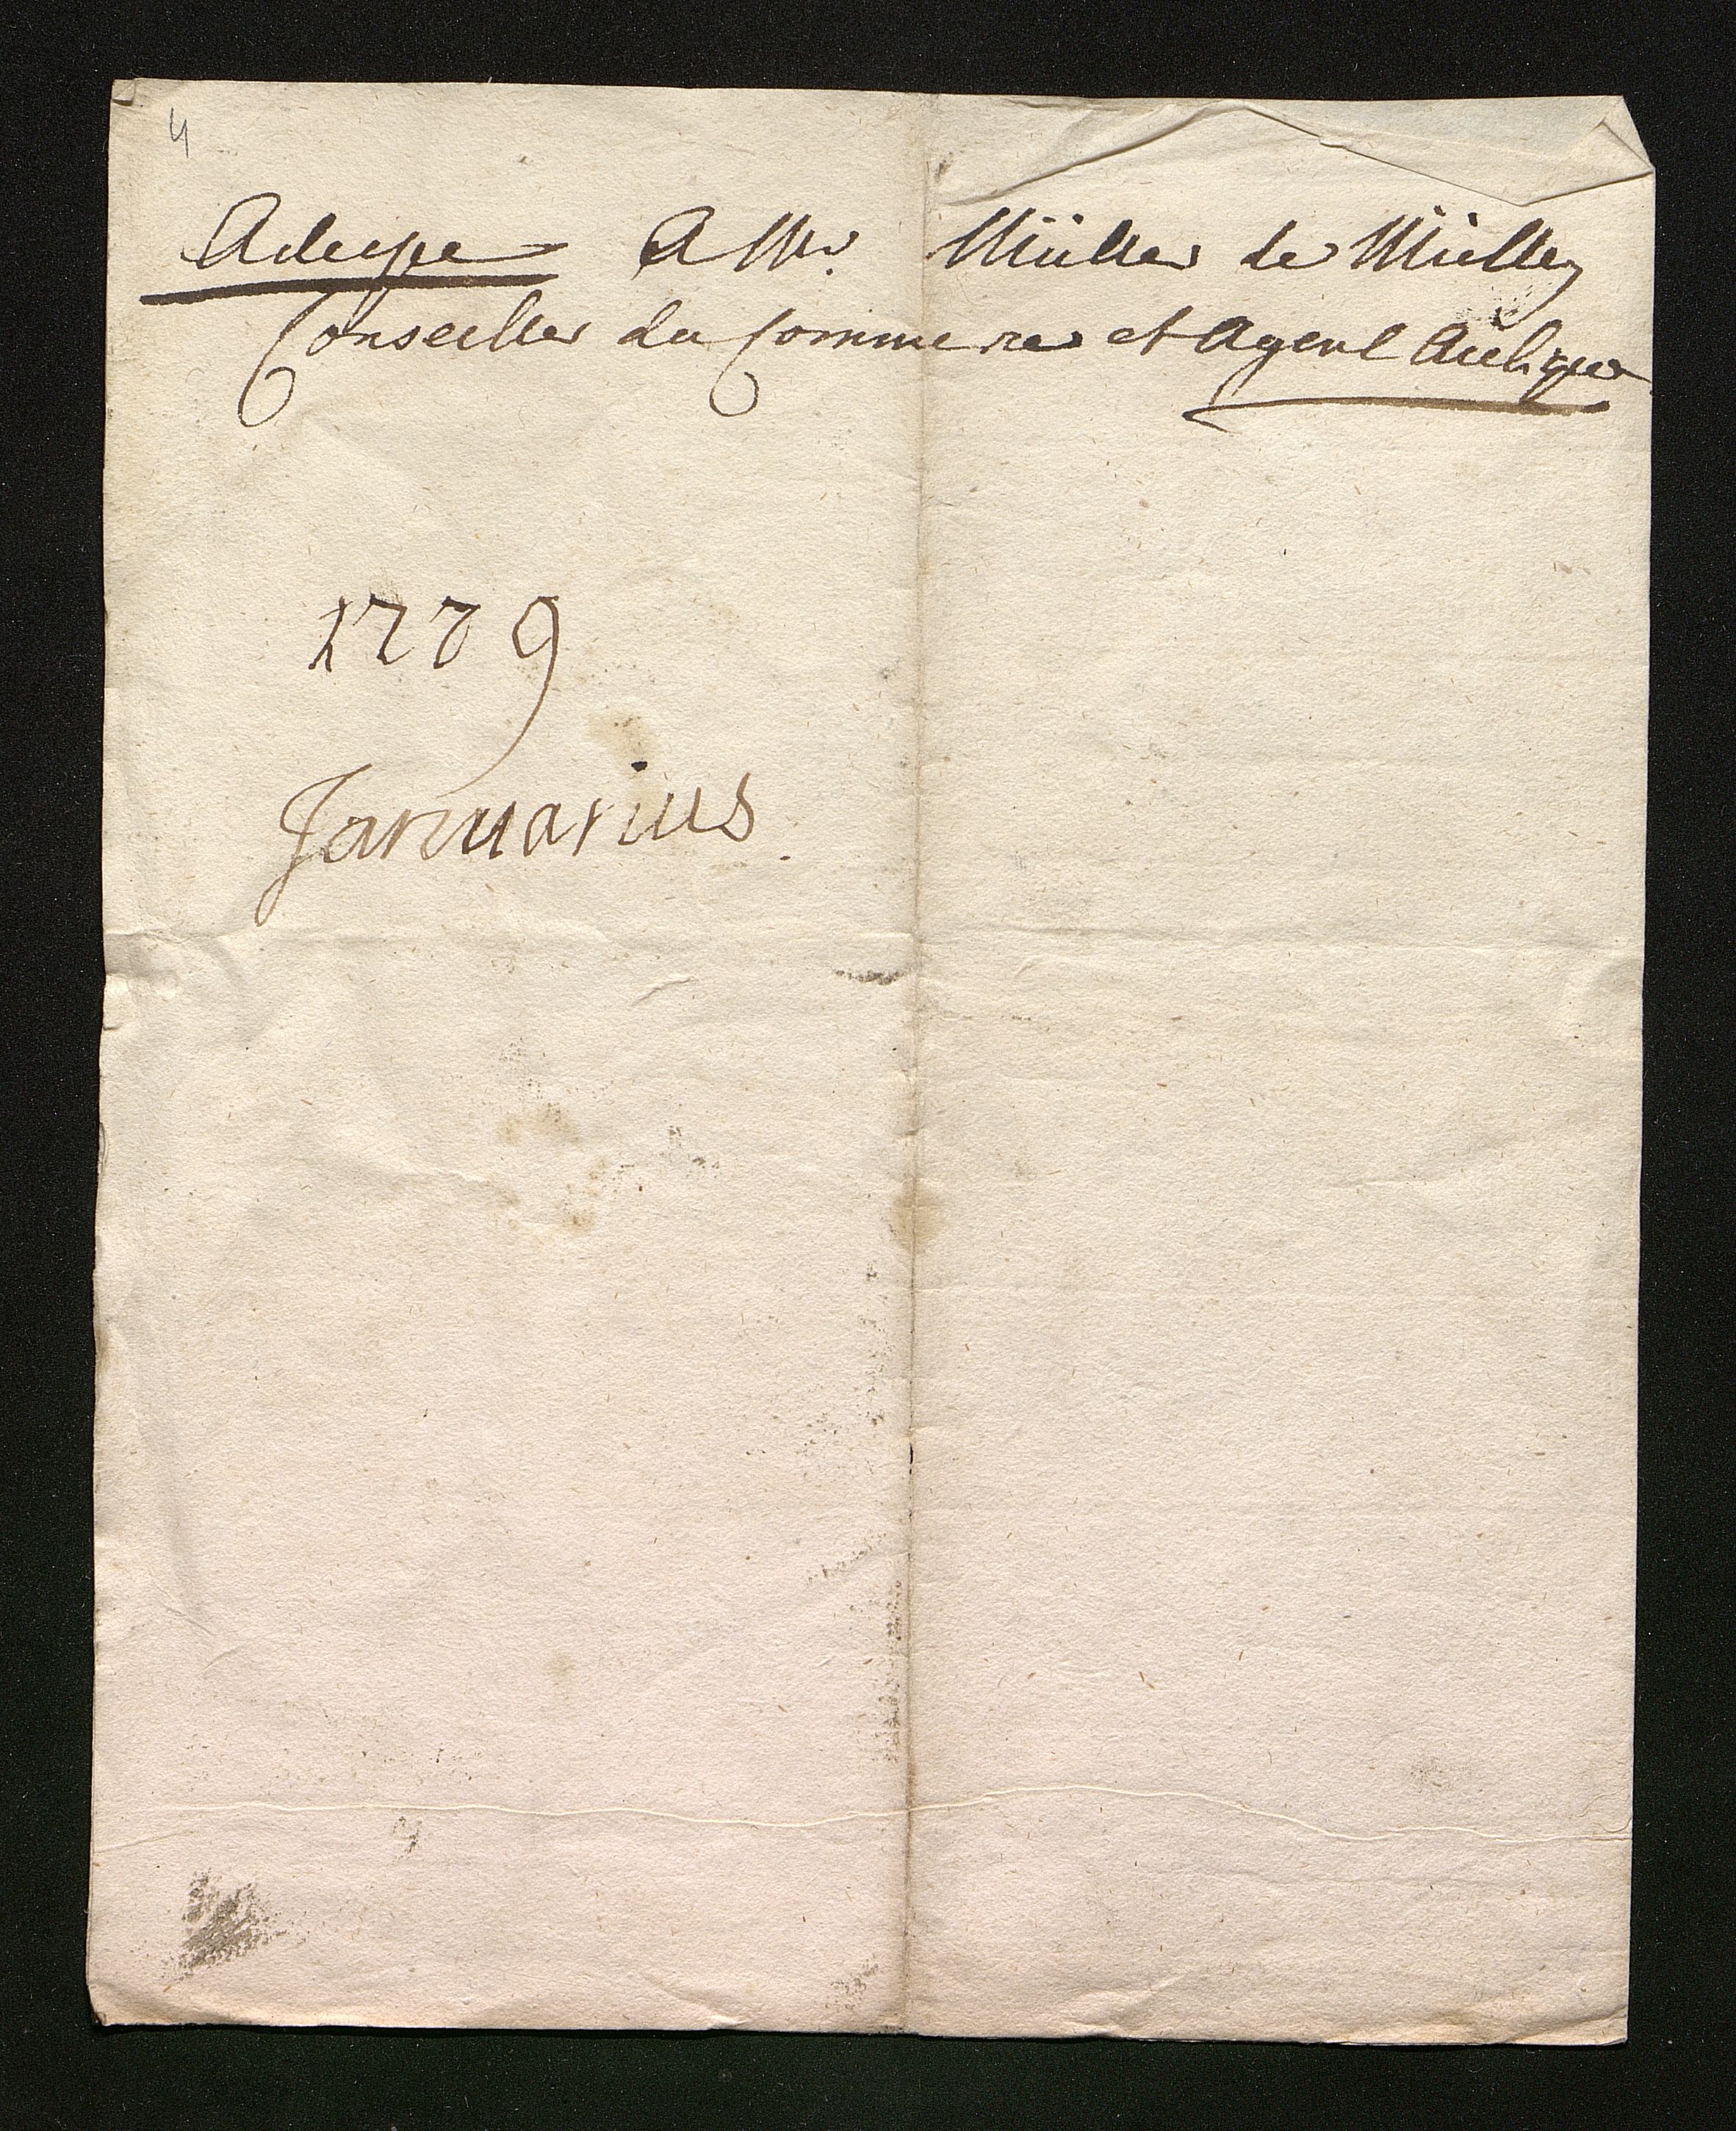 4
Adresse A Mr. Müller de Müllegg
Conseiller du Commerce et Agent Aulique
1779
Januarius.